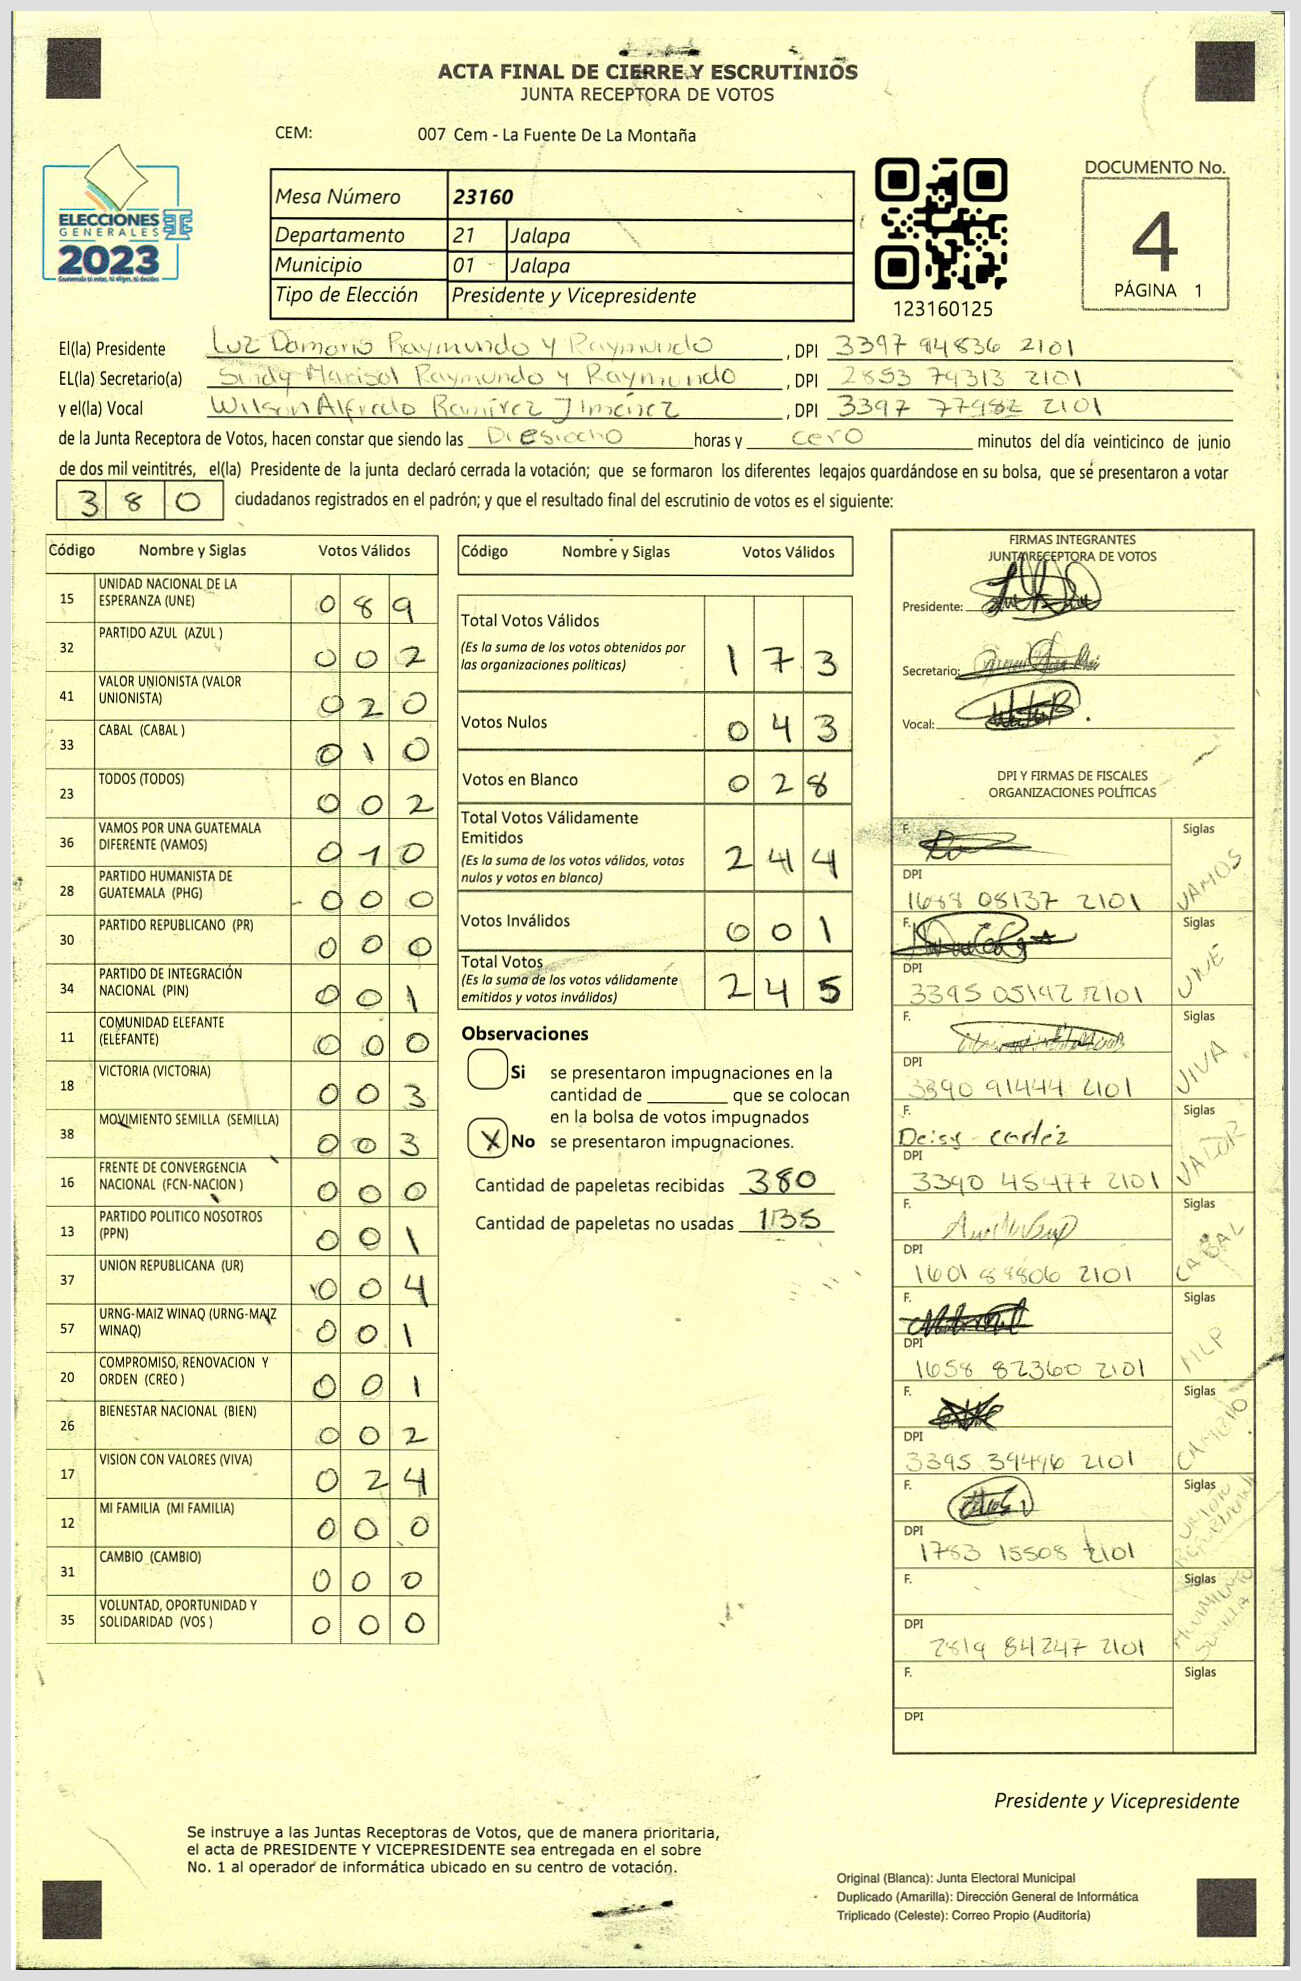 ACTA FINAL DE CIERRE Y ESCRUTINIOS
JUNTA RECEPTORA DE VOTOS
CEM: 007 Cem - La Fuente De La Montaña
ELECCIONES
GENERALES
2023
Mesa Número 23160
Departamento 21 Jalapa
Municipio 01 Jalapa
Tipo de Elección Presidente y Vicepresidente
123160125
DOCUMENTO No.
4
PÁGINA 1
El(la) Presidente Luz Damaris Raymundo y Raymundo, DPI 3397 94836 2101
EL(la) Secretario(a) Sindy Marisol Raymundo y Raymundo, DPI 2853 79313 2101
y el(la) Vocal Wilson Alfredo Ramírez Jiménez, DPI 3397 77982 2101
de la Junta Receptora de Votos, hacen constar que siendo las Diesiocho horas y cero minutos del día veinticinco de junio
de dos mil veintitrés, el(la) Presidente de la junta declaró cerrada la votación; que se formaron los diferentes legajos guardándose en su bolsa, que se presentaron a votar
380 ciudadanos registrados en el padrón; y que el resultado final del escrutinio de votos es el siguiente:
Código Nombre y Siglas Votos Válidos
15 UNIDAD NACIONAL DE LA ESPERANZA (UNE) 089
32 PARTIDO AZUL (AZUL ) 002
41 VALOR UNIONISTA (VALOR UNIONISTA) 020
33 CABAL (CABAL ) 010
23 TODOS (TODOS) 002
36 VAMOS POR UNA GUATEMALA DIFERENTE (VAMOS) 010
28 PARTIDO HUMANISTA DE GUATEMALA (PHG) 000
30 PARTIDO REPUBLICANO (PR) 000
34 PARTIDO DE INTEGRACIÓN NACIONAL (PIN) 001
11 COMUNIDAD ELEFANTE (ELEFANTE) 000
18 VICTORIA (VICTORIA) 003
38 MOVIMIENTO SEMILLA (SEMILLA) 003
16 FRENTE DE CONVERGENCIA NACIONAL (FCN-NACION ) 000
13 PARTIDO POLITICO NOSOTROS (PPN) 001
37 UNION REPUBLICANA (UR) 004
57 URNG-MAIZ WINAQ (URNG-MAIZ WINAQ) 001
20 COMPROMISO, RENOVACION Y ORDEN (CREO ) 001
26 BIENESTAR NACIONAL (BIEN) 002
17 VISION CON VALORES (VIVA) 024
12 MI FAMILIA (MI FAMILIA) 000
31 CAMBIO (CAMBIO) 000
35 VOLUNTAD, OPORTUNIDAD Y SOLIDARIDAD (VOS ) 000
Código Nombre y Siglas Votos Válidos
Total Votos Válidos 173
(Es la suma de los votos obtenidos por
las organizaciones políticas)
Votos Nulos 043
Votos en Blanco 028
Total Votos Válidamente
Emitidos 244
(Es la suma de los votos válidos, votos
nulos y votos en blanco)
Votos Inválidos 001
Total Votos 245
(Es la suma de los votos válidamente
emitidos y votos inválidos)
Observaciones
Si se presentaron impugnaciones en la
cantidad de ________ que se colocan
en la bolsa de votos impugnados
X No se presentaron impugnaciones.
Cantidad de papeletas recibidas 380
Cantidad de papeletas no usadas 135
FIRMAS INTEGRANTES
JUNTA RECEPTORA DE VOTOS
Presidente:
Secretario:
Vocal:
DPI Y FIRMAS DE FISCALES
ORGANIZACIONES POLÍTICAS
F. Siglas VAMOS
DPI 1688 08137 2101
F. Siglas UNE
DPI 3395 05192 2101
F. Siglas VIVA
DPI 3390 91444 2101
F. Deisy cortéz Siglas VALOR
DPI 3390 45477 2101
F. Siglas CABAL
DPI 1601 89806 2101
F. Siglas MLP
DPI 1658 82360 2101
F. Siglas CAMBIO
DPI 3395 39496 2101
F. Siglas UNION REPUBLICANA
DPI 1783 15508 2101
F. Siglas MOVIMIENTO SEMILLA
DPI 2819 84247 2101
F. Siglas
DPI
Presidente y Vicepresidente
Se instruye a las Juntas Receptoras de Votos, que de manera prioritaria,
el acta de PRESIDENTE Y VICEPRESIDENTE sea entregada en el sobre
No. 1 al operador de informática ubicado en su centro de votación.
Original (Blanca): Junta Electoral Municipal
Duplicado (Amarilla): Dirección General de Informática
Triplicado (Celeste): Correo Propio (Auditoría)